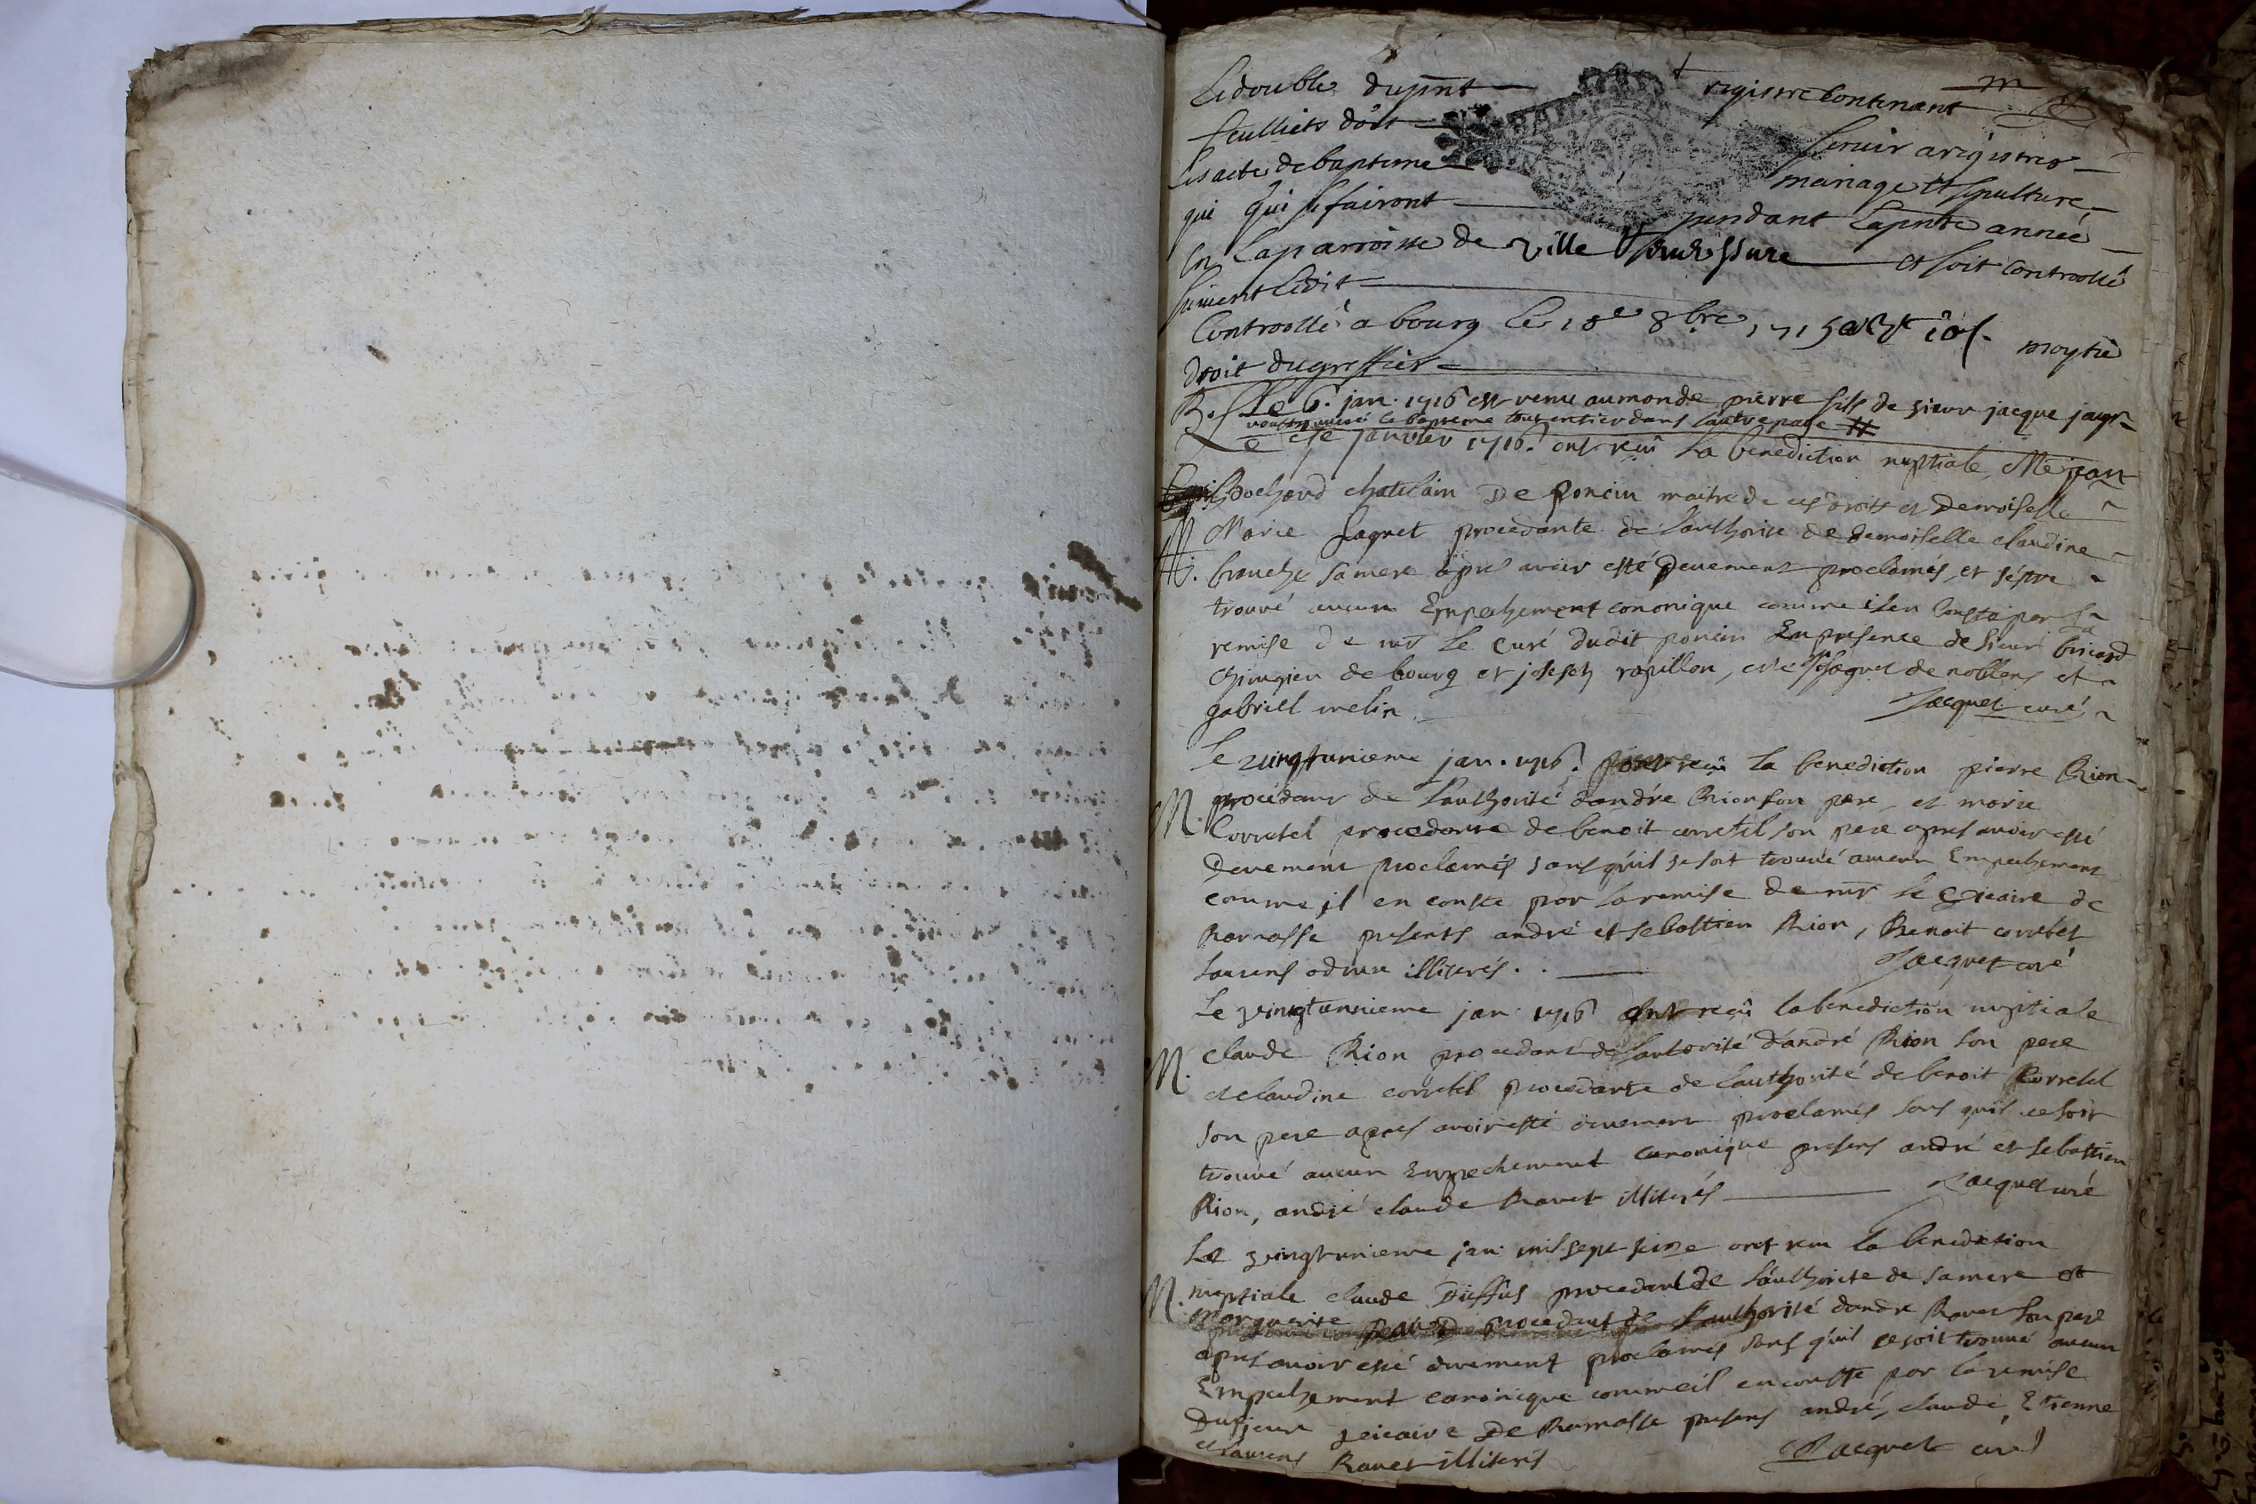 Le double du pnt registre contenant
feulliets doit servir a registrer
les acte de bapteme mariage et sepulture
qui qui se fairont pendant la pnte année
en la parroisse de ville et soit controollé
suivent l'edit
Controollé a bourg le 18e 8bre 1715 moytié
droit du greffier
B. Le 6. jan. 1716 est venu au monde pierre fils de sieur jacque
le bapteme tout entier dans l'autre page #
janvier 1716. ont reçu la benediction nuptiale Me jean
Bochard chatelain De Poncin maitre de ces droits et Demoiselle
M. Marie Jaquet procedante de l'authorité de demoiselle claudine
sa mere apres avoir esté Deuement proclamés, et
trouvé aucun Empechement cononique comme il en Consta par la
remise de mr le Curé dudit poncin En presence de sieur bricard
chirugien de bourg et joseph rapillon, Jaquet de noblens et
gabriel melin. Jacquet curé
Le vingtunieme jan. 1716. ont reçu la benediction pierre Rion
M. procedant de l'authorité d'andré Rion son pere, et marie
Corretel procedante de benoit corretel son pere apres avoir esté
Devement proclamés sans qu'il se soit trouvé aucun Empechement
comme il en conste par la remise de mr le vicaire de
Ramasse presents andré et sebastien Rion, Benoit corretel
laurens illiterés. Jacquet curé
Le vingtunnieme jan. 1716 ont reçu la benediction nuptiale
M. claude Rion procedant de l'autorité d'andré Rion son pere
et claudine corretel procedante de l'authorité de benoit Corretel
son pere apres avoir esté duement proclamés sans qu'il ce soit
trouvé aucun Empechement canonique presens andré et sebastien
Rion, andré claude Ravet illiterés Jacquet curé
Le vingtunieme jan. mil sept seize ont reçu la benediction
M. nuptiale claude Duffus procedant de l'authorité de sa mere et
Marguerite procedant de l'authorité d'andré Ravet son pere
apres avoir esté duement proclamés sans qu'il ce soit trouvé aucun
Empechement canonicque comme il en conste par la remise
Du sieur vicaire De Ramasse presens andré, claude, Etienne
et laurens Ravet illiterés Jacquet curé